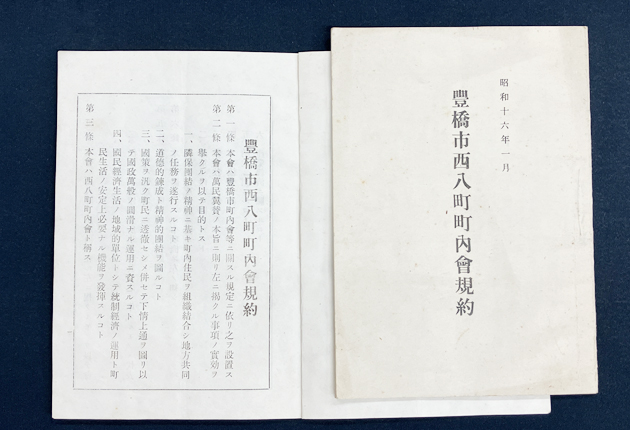 昭和十六年一月
豐橋市西八町町內會規約
豐橋市西八町町內會規約
第一條 本會ハ豐橋市町內會等ニ關スル規定ニ依リ之ヲ設置ス
第二條 本會ハ萬民翼贊ノ本旨ニ則リ左ニ揭クル事項ノ實効ヲ
擧クルヲ以テ目的トス
一、隣保團結ノ精神ニ基キ町內住民ヲ組織結合シ地方共同
ノ任務ヲ遂行スルコト
二、道德的鍊成ト精神的團結ヲ圖ルコト
三、國策ヲ汎ク町民ニ透徹セシメ併セテ下情上通ヲ圖リ以
テ國政萬般ノ圓滑ナル運用ニ資スルコト
四、國民經濟生活ノ地域的單位トシテ統制經濟ノ運用ト町
民生活ノ安定上必要ナル機能ヲ發揮スルコト
第三條 本會ハ西八町町內會ト稱ス